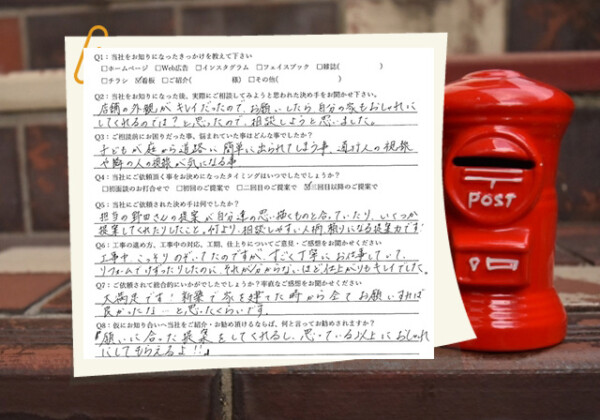 Q1：当社をお知りになったきっかけを教えて下さい
□ホームページ □Web広告 □インスタグラム □フェイスブック □雑誌( )
□チラシ ☑看板 □ご紹介( 様) □その他( )
Q2：当社をお知りになった後、実際にご相談してみようと思われた決め手をお聞かせ下さい。
店舗の外観がキレイだったので、お願いしたら自分の家もおしゃれに
してくれるのでは？と思ったので、相談しようと思いました。
Q3：ご相談前にお困りだった事、悩まれていた事はどんな事でしたか？
子どもが庭から道路に簡単に出られてしまう事、通行人の視線
や隣の人の視線が気になる事
Q4：当社にご依頼頂く事をお決めになったタイミングはいつでしたでしょうか？
□初面談のお打合せで □初回のご提案で □二回目のご提案で ☑三回目以降のご提案で
Q5：当社にご依頼されたた決め手は何でしたか？
担当の野田さんの提案が自分達の思い描くものと合っていたり、いくつか
提案してくれたりしたこと。何より、相談しやすい人柄、頼りになる提案力です!
Q6：工事の進め方、工事中の対応、工期、仕上りについてご意見・ご感想をお聞かせください
工事中、こっそりのぞいてたのですが、すごく丁寧にお仕事していて、
リフォームでけずったりしたのに、それが分からないほど仕上がりもキレイでした。
Q7：ご依頼されて総合的にいかがでしたでしょうか？率直なご感想をお聞かせください
大満足です！新築で家を建てた時から全てお願いすれば
良かったなーと思ったくらいです。
Q8：仮にお知り合いへ当社をご紹介・お勧め頂けるならば、何と言ってお勧めされますか？
『願いに合った提案をしてくれるし、思っている以上におしゃれ
にしてもらえるよ!!』
POST